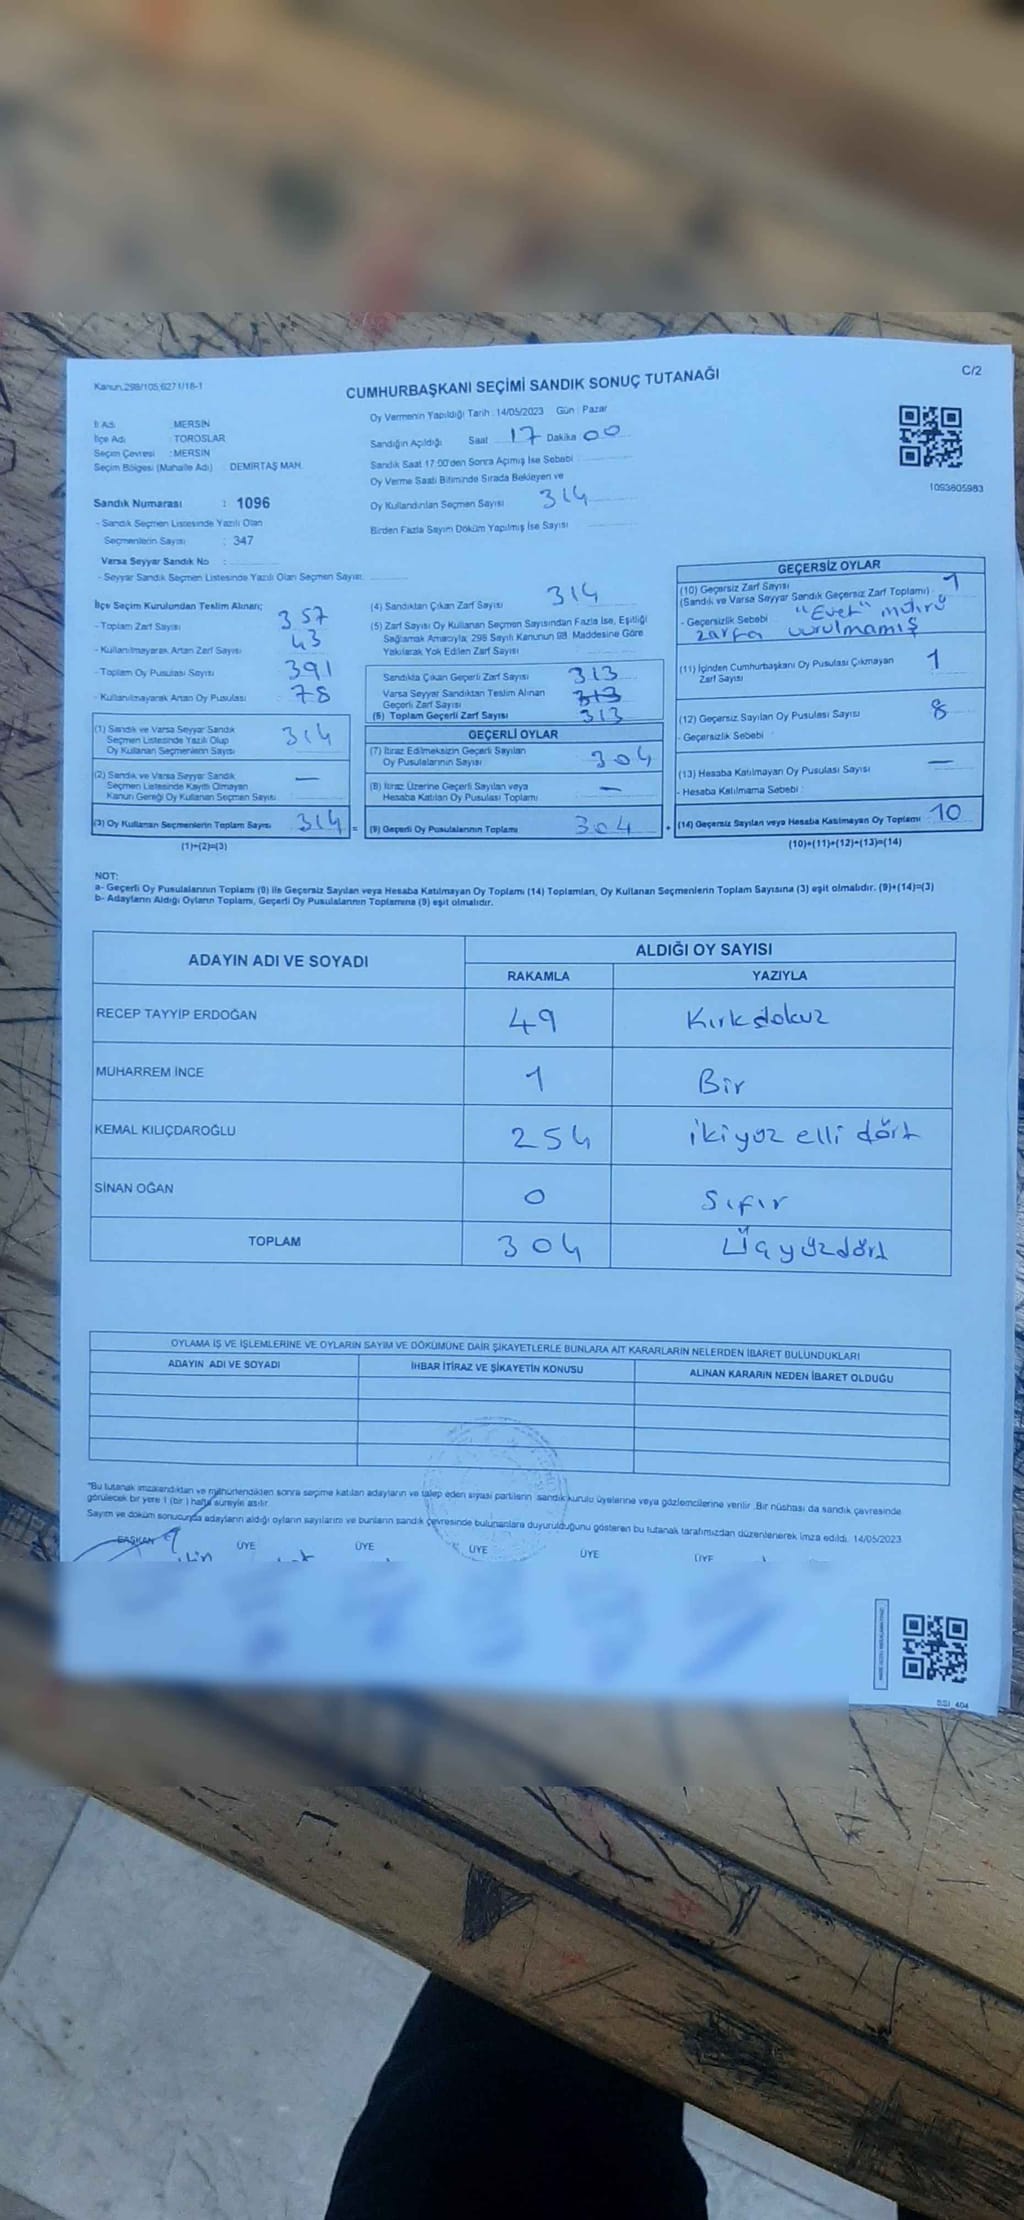 Kanun.298/105,6271/18-1
CUMHURBAŞKANI SEÇİMİ SANDIK SONUÇ TUTANAĞI
C/2
İl Adı : MERSİN
İlçe Adı : TOROSLAR
Seçim Çevresi : MERSİN
Seçim Bölgesi (Mahalle Adı) : DEMİRTAŞ MAH.
Oy Vermenin Yapıldığı Tarih : 14/05/2023 Gün : Pazar
Sandığın Açıldığı Saat 17 Dakika 00
Sandık Saat 17:00'den Sonra Açımış İse Sebebi
Oy Verme Saati Bitiminde Sırada Bekleyen ve
Oy Kullandırılan Seçmen Sayısı 314
Birden Fazla Sayım Döküm Yapılmış İse Sayısı
1053605983
Sandık Numarası : 1096
- Sandık Seçmen Listesinde Yazılı Olan
Seçmenlerin Sayısı : 347
Varsa Seyyar Sandık No :
- Seyyar Sandık Seçmen Listesinde Yazılı Olan Seçmen Sayısı
İlçe Seçim Kurulundan Teslim Alınan;
- Toplam Zarf Sayısı 357
- Kullanılmayarak Artan Zarf Sayısı 43
- Toplam Oy Pusulası Sayısı 391
- Kullanılmayarak Artan Oy Pusulası : 78
(1) Sandık ve Varsa Seyyar Sandık
Seçmen Listesinde Yazılı Olup
Oy Kullanan Seçmenlerin Sayısı 314
(2) Sandık ve Varsa Seyyar Sandık
Seçmen Listesinde Kayıtlı Olmayan
Kanun Gereği Oy Kullanan Seçmen Sayısı —
(3) Oy Kullanan Seçmenlerin Toplam Sayısı 314 =
(1)+(2)=(3)
(4) Sandıktan Çıkan Zarf Sayısı 314
(5) Zarf Sayısı Oy Kullanan Seçmen Sayısından Fazla İse, Eşitliği
Sağlamak Amacıyla; 298 Sayılı Kanunun 98. Maddesine Göre
Yakılarak Yok Edilen Zarf Sayısı
Sandıkta Çıkan Geçerli Zarf Sayısı 313
Varsa Seyyar Sandıktan Teslim Alınan
Geçerli Zarf Sayısı 313
(6) Toplam Geçerli Zarf Sayısı 313
GEÇERLİ OYLAR
(7) İtiraz Edilmeksizin Geçerli Sayılan
Oy Pusulalarının Sayısı 304
(8) İtiraz Üzerine Geçerli Sayılan veya
Hesaba Katılan Oy Pusulası Toplamı —
(9) Geçerli Oy Pusulalarının Toplamı 304 +
GEÇERSİZ OYLAR
(10) Geçersiz Zarf Sayısı
(Sandık ve Varsa Seyyar Sandık Geçersiz Zarf Toplamı) 1
- Geçersizlik Sebebi "Evet" mührü
zarfa vurulmamış
(11) İçinden Cumhurbaşkanı Oy Pusulası Çıkmayan
Zarf Sayısı 1
(12) Geçersiz Sayılan Oy Pusulası Sayısı 8
- Geçersizlik Sebebi
(13) Hesaba Katılmayan Oy Pusulası Sayısı —
- Hesaba Katılmama Sebebi :
(14) Geçersiz Sayılan veya Hesaba Katılmayan Oy Toplamı 10
(10)+(11)+(12)+(13)=(14)
NOT:
a- Geçerli Oy Pusulalarının Toplamı (9) ile Geçersiz Sayılan veya Hesaba Katılmayan Oy Toplamı (14) Toplamları, Oy Kullanan Seçmenlerin Toplam Sayısına (3) eşit olmalıdır. (9)+(14)=(3)
b- Adayların Aldığı Oyların Toplamı, Geçerli Oy Pusulalarının Toplamına (9) eşit olmalıdır.
ADAYIN ADI VE SOYADI
ALDIĞI OY SAYISI
RAKAMLA YAZIYLA
RECEP TAYYİP ERDOĞAN 49 Kırkdokuz
MUHARREM İNCE 1 Bir
KEMAL KILIÇDAROĞLU 254 ikiyüz elli dört
SİNAN OĞAN 0 Sıfır
TOPLAM 304 Üçyüzdört
OYLAMA İŞ VE İŞLEMLERİNE VE OYLARIN SAYIM VE DÖKÜMÜNE DAİR ŞİKAYETLERLE BUNLARA AİT KARARLARIN NELERDEN İBARET BULUNDUKLARI
ADAYIN ADI VE SOYADI İHBAR İTİRAZ VE ŞİKAYETİN KONUSU ALINAN KARARIN NEDEN İBARET OLDUĞU
"Bu tutanak imzalandıktan ve mühürlendikten sonra seçime katılan adayların ve talep eden siyasi partilerin sandık kurulu üyelerine veya gözlemcilerine verilir. Bir nüshası da sandık çevresinde
görülecek bir yere 1 (bir ) hafta süreyle asılır.
Sayım ve döküm sonucunda adayların aldığı oyların sayılarını ve bunların sandık çevresinde bulunanlara duyurulduğunu gösteren bu tutanak tarafımızdan düzenlenerek imza edildi. 14/05/2023
BAŞKAN ÜYE ÜYE ÜYE ÜYE ÜYE
SSI 404